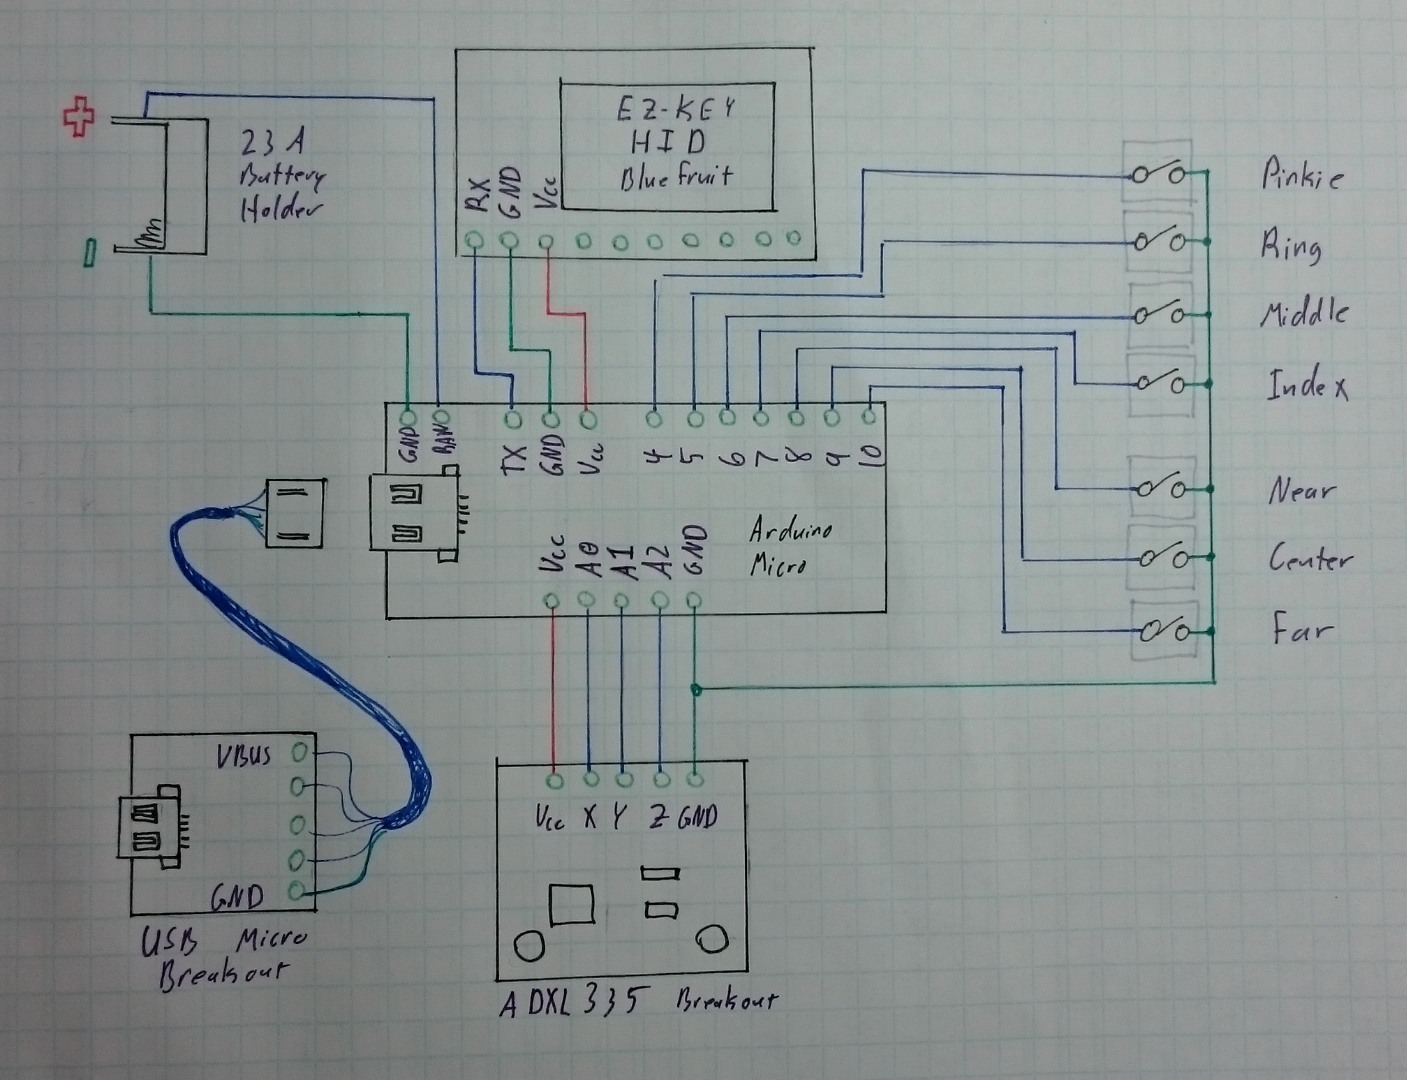 EZ-KEY
HID
Bluefruit
RX
GND
Vcc
23A
Battery
Holder
Pinkie
Ring
Middle
Index
Near
Center
Far
GND
RAW
TX
GND
Vcc
4
5
6
7
8
9
10
Arduino
Micro
Vcc
A0
A1
A2
GND
VBUS
GND
USB Micro
Breakout
Vcc X Y Z GND
ADXL335 Breakout